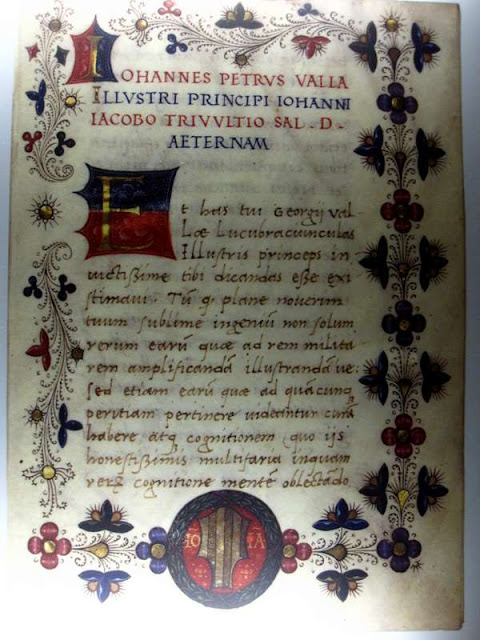 IOHANNES PETRVS VALLA
ILLVSTRI PRINCIPI IOHANNI
IACOBO TRIVVLTIO SAL. D.
AETERNAM
Et has tui Georgij Val
læ Lucubracuinculas
Illustris princeps in
uictissime tibi dicandas esse exi
stimaui. Tū q plane nouerim
tuum sublime ingeniū non solum
rerum earū quæ ad rem milita
rem amplificandā illustrandā ue:
sed etiam earū quæ ad quācunq
peritiam pertinere uideantur curā
habere atq cognitionem quo iis
honestissimis multifaria inquam
rerꝝ cognitione mentē oblectādo
IO IA